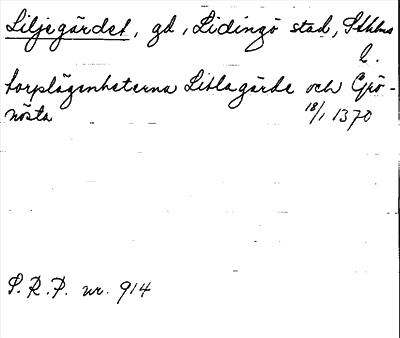 Liljegärdet, gd, Lidingö stad, Sthlms
l.
torplägenheterna Litlagärde och Grö-
nösta 18/1 1370
S.R.P. nr. 914